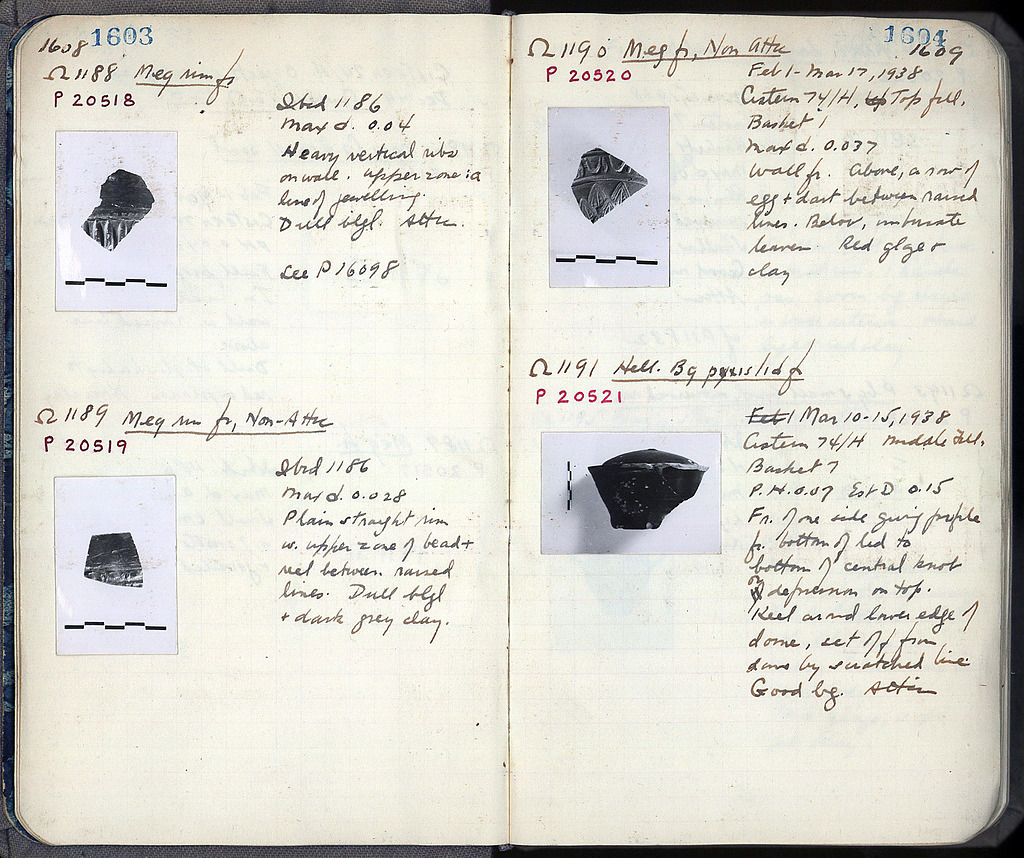 1608 1603
Ω 1188 Meg rim fr
P 20518
Ibid 1186
Max d. 0.04
Heavy vertical ribs
on wall. Upper zone: a
line of jewelling
Dull blgl. Attic.
See P 16098
Ω 1189 Meg rim fr, Non-Attic
P 20519
Ibid 1186
Max d. 0.028
Plain straight rim
w. upper zone of bead +
reel between raised
lines. Dull blgl
+ dark grey clay.
1604
1609
Ω 1190 Meg fr, Non Attic
P 20520
Feb 1 - Mar 17, 1938
Cistern 74/H, Top fill,
Basket 1
Max d. 0.037
Wall fr. Above, a row of
egg + dart between raised
lines. Below, imbricate
leaves Red glaze +
clay
Ω 1191 Hell. Bg pyxis lid fr
P 20521
Feb 1 Mar 10-15, 1938
Cistern 74/H Middle Fill,
Basket 7
P.H. 0.07 Est D 0.15
Fr. of one side giving profile
fr. bottom of lid to
bottom of central knob
or depression on top.
Keel around lower edge of
dome, set off from
dome by scratched line
Good bg. Attic